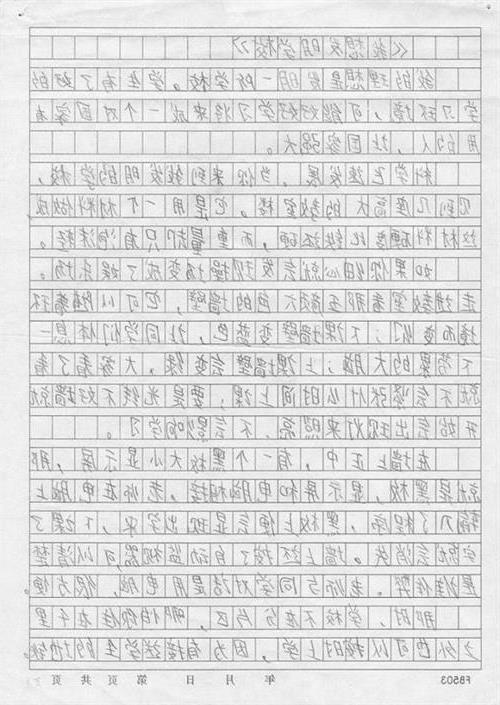 《我想发明学校》
我的理想是发明一所学校。学生有了好的
学习环境，可能好好学习将来成一个对国家有
用的人，让国家强大。
科学飞速发展，当你来到我发明的学校，
见到几座高大的教室楼。它是用一个材料做成，
这材料硬度比铁还硬，而重量却只有泡沫轻。
如果你细心就会发现墙变成了娱乐场。
走进教室看那五颜六色的墙壁，它可以随着环
境而变化；下课墙壁变蓝色，让同学们休息一
下劳累的大脑；上课墙壁会变绿，大家看了看
就不会紧张什么时间上课；要是光线不好墙就
开始会出现灯来照亮，不会影响学习。
在墙上正中，有一个黑板大小显示屏，那
就是黑板，显示屏和电脑相接，老师在电脑上
输入了程序，黑板上便会显现出字来，下课了
字就会消失。墙上还接了自动监视器可以清楚
是谁作弊。老师与同学对话是用电脑，很方便。
那时，学校不在分片区，哪怕你住在千里
之外也可以按时上学，因为有接送学生的地铁
年 月 日 第 页 共 页 FB503